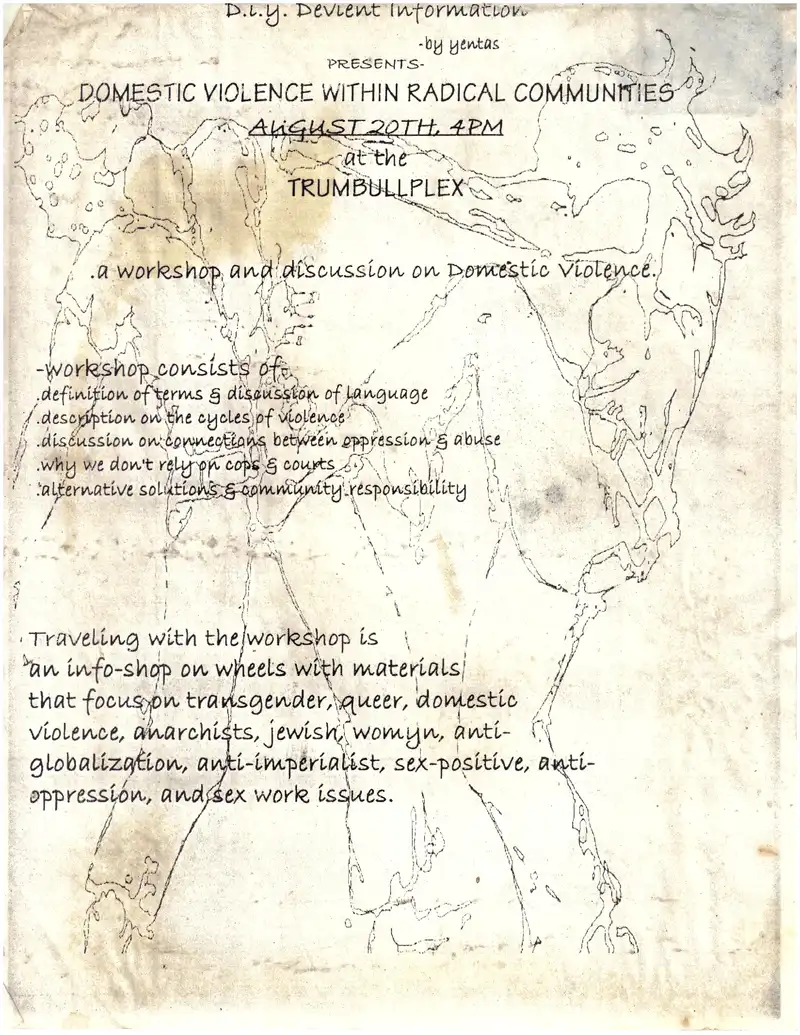 D.i.y. Devient Information
-by yentas
PRESENTS-
DOMESTIC VIOLENCE WITHIN RADICAL COMMUNITIES
AUGUST 20TH, 4PM
at the
TRUMBULLPLEX
.a workshop and discussion on Domestic Violence.
-workshop consists of-
.definition of terms & discussion of language
.description on the cycles of violence
.discussion on connections between oppression & abuse
.why we don't rely on cops & courts
.alternative solutions & community responsibility
Traveling with the workshop is
an info-shop on wheels with materials
that focus on transgender, queer, domestic
violence, anarchists, jewish, womyn, anti-
globalization, anti-imperialist, sex-positive, anti-
oppression, and sex work issues.